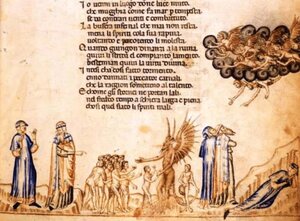 I o uenni in luogo dogne luce muto
che mugghia come fa mar per tempesta
se da contrari uenti e combattuto.
L a bufera infernal che mai non resta
mena li spirti con la sua rapina
uoltando et percotendo li molesta
Q uando giungon dauanti a la ruina
quiui le strida il compianto lamento
bestemmian quiui la uirtu diuina
I ntesi cha cosi fatto tormento
enno dannati i peccator carnali
che la ragion sommettono al talento
E t come gli stornei ne portan lali
nel freddo tempo a schiera larga e piena
cosi quel fiato li spiriti mali